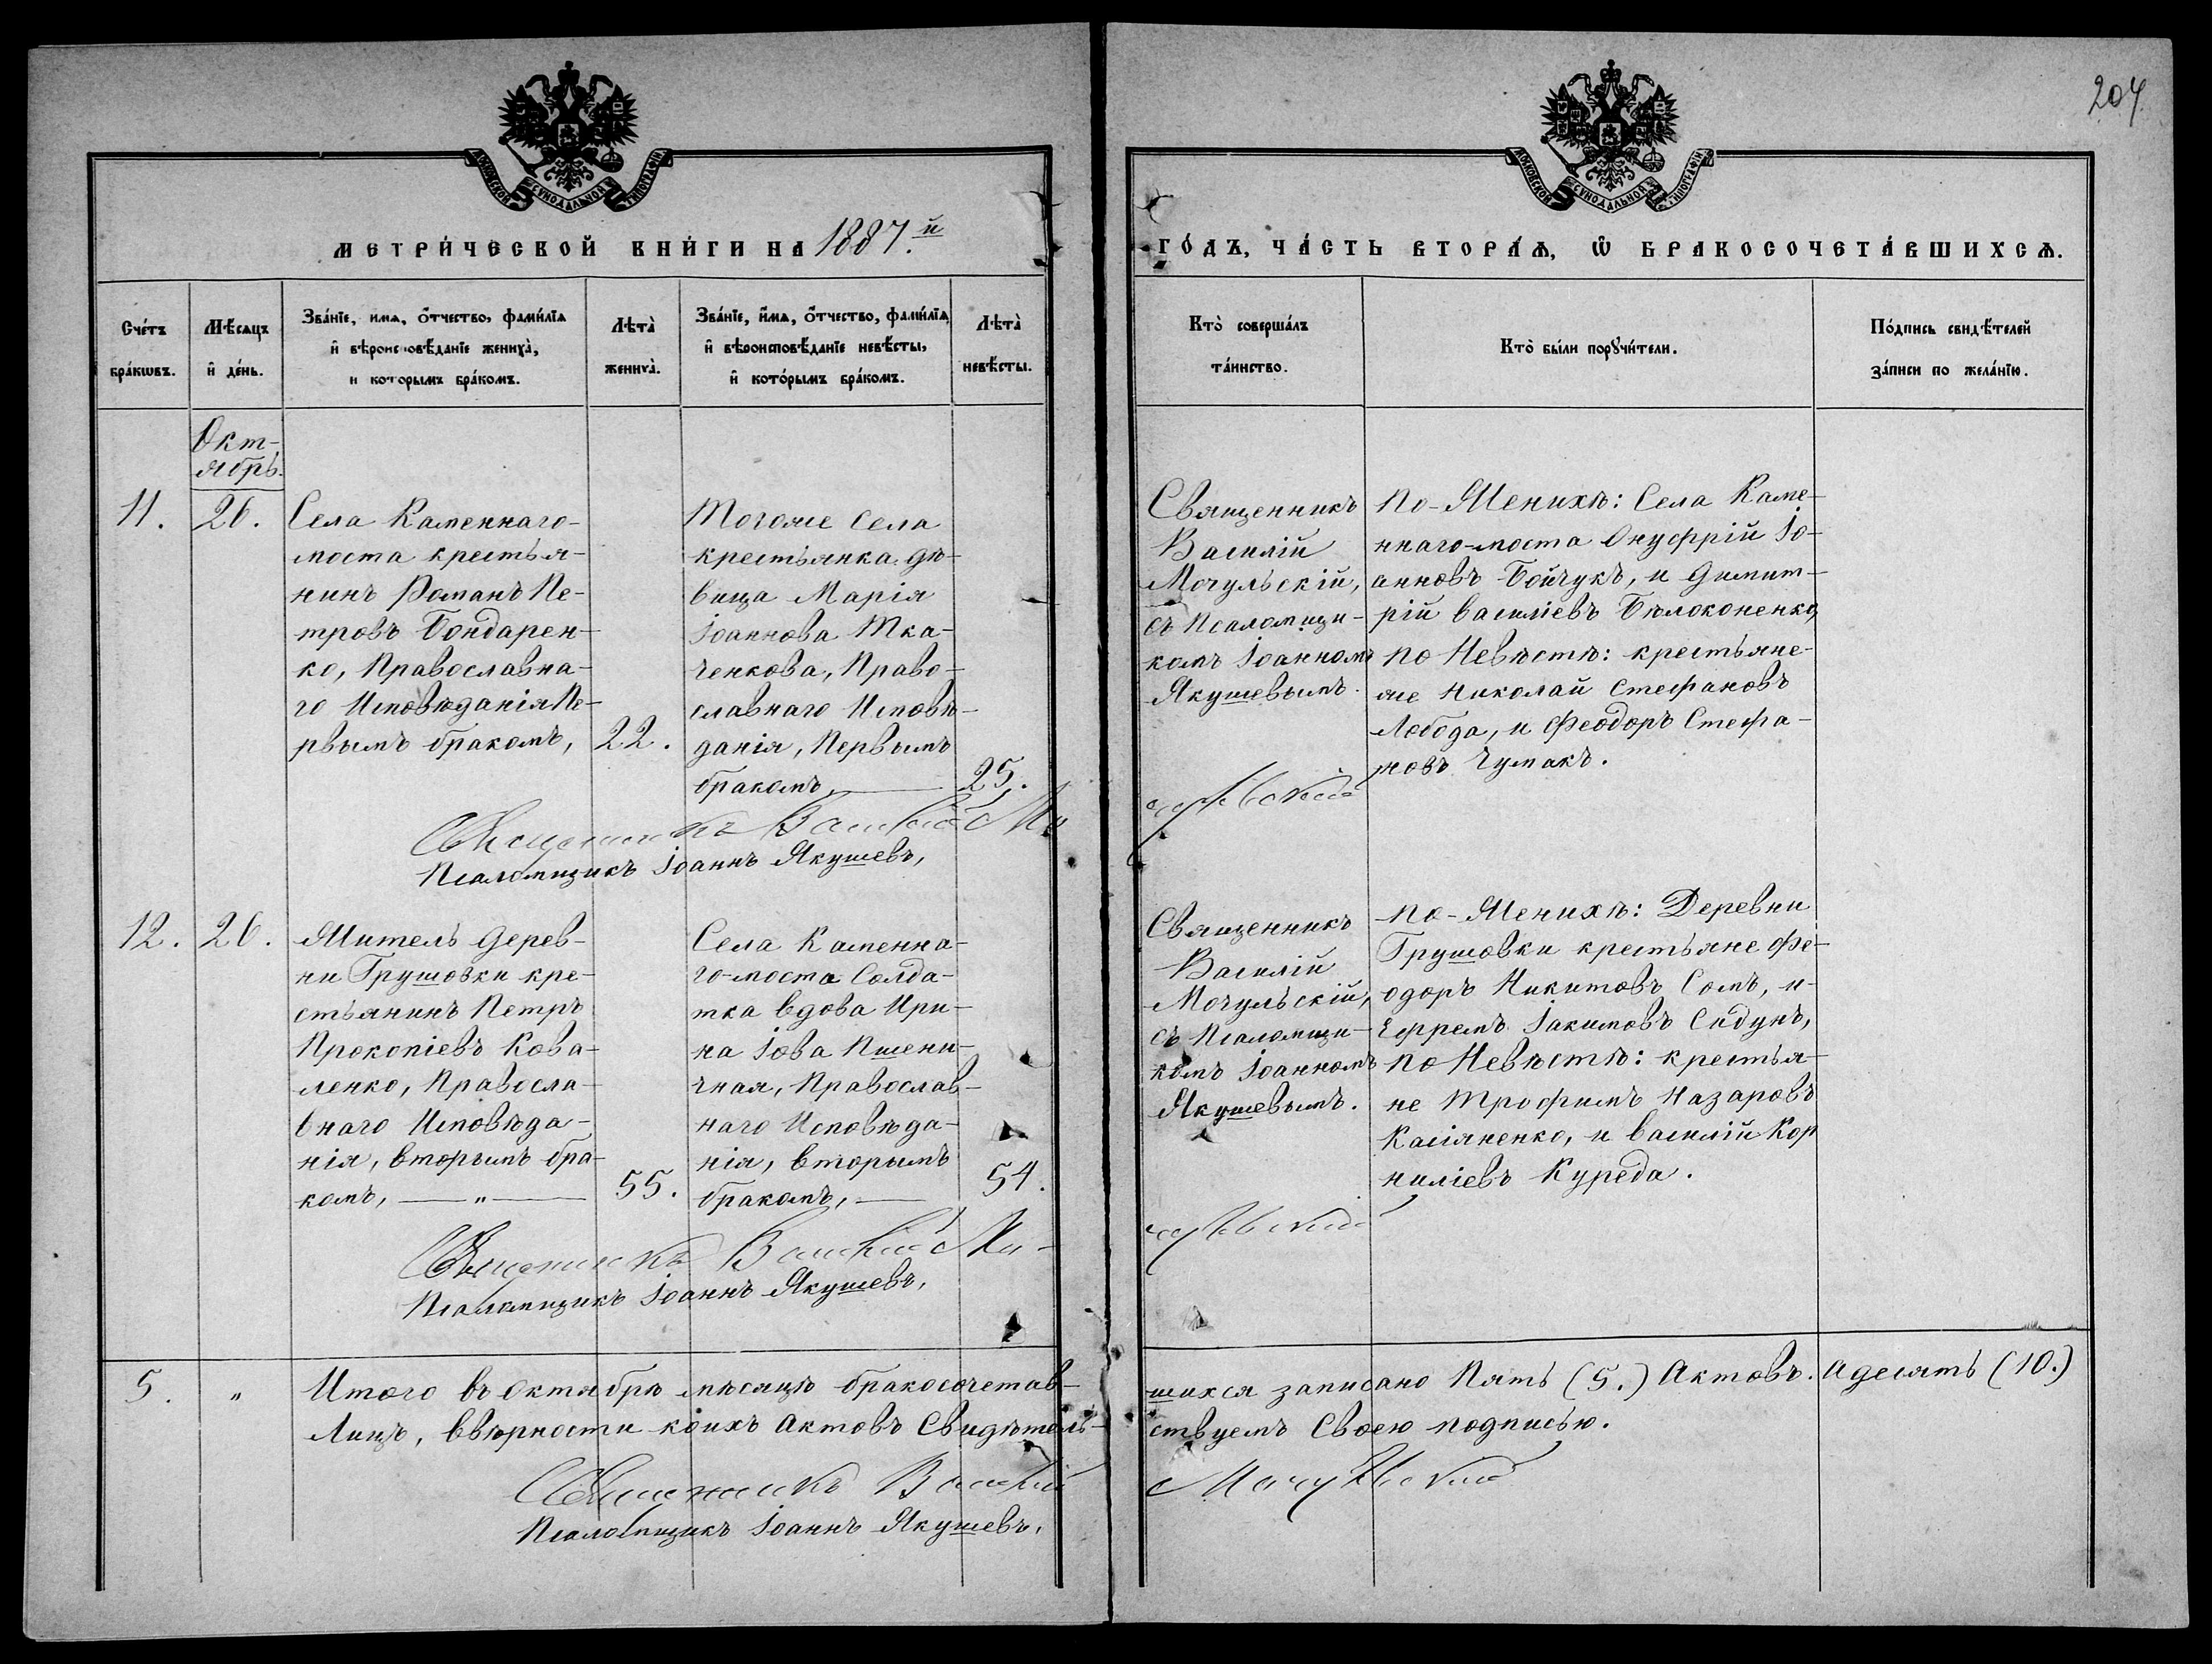 204
МОСКОВСКОЙ СѴНОДАЛЬНОЙ ТИПОГРАФІИ
МОСКОВСКОЙ СѴНОДАЛЬНОЙ ТИПОГРАФІИ
МЕТРИ́ЧЕСКОЙ КНИ́ГИ НА 1887.й
ГО́ДЪ, ЧА́СТЬ ВТОРА́Ѧ, Ѡ҆ БРАКОСОЧЕТА́ВШИХСѦ.
Сче́тъ
бра́кѡвъ.
Мѣ́сѧцъ
и҆ де́нь.
Зва́нїе, имѧ, ѻ҆́тчество, фами́лїѧ
и҆ вѣроисповѣ́данїе жениха̀,
и которымъ бра́комъ.
Лѣта̀
жениха̀.
Зва́нїе, и҆́мѧ, ѻ҆́тчество, фами́лїѧ
и҆ вѣроисповѣ́данїе невѣ́сты,
и҆ кото́рымъ бра́комъ.
Лѣта̀
невѣ́сты.
Кто̀ соверша́лъ
та́инство.
Кто̀ бы́ли порꙋчи́тели.
По́дпись свидѣ́телей
за́писи по жела́нїю.
Окт-
ябрь.
11.
26.
Села Каменнаго-
моста крестья-
нинъ Романъ Пе-
тровъ Бондарен-
ко, Православна-
го Исповѣданія Пе-
рвымъ бракомъ,
22.
Тогоже Села
крестьянка дѣ-
вица Марія
Іоаннова Тка-
ченкова, Право-
славнаго Исповѣ-
данія, Первымъ
бракомъ,
25.
Священникъ
Василій
Мочульскій,
съ Псаломщи-
комъ Іоанномъ
Якушевымъ.
По-Женихѣ: Села Каме-
ннаго-моста Онуфрій Іо-
анновъ Бойчукъ, и Димит-
рій Василіевъ Бѣлоконенко,
по Невѣстѣ: крестьяне-
же Николай Стефановъ
Лобода, и Феодоръ Стефа-
новъ Чумакъ.
Священникъ Василій Мо
чульскій
Псаломщикъ Іоаннъ Якушевъ,
12.
26.
Житель дерев-
ни Грушовки кре-
стьянинъ Петръ
Прокопіевъ Кова-
ленко, Правосла-
внаго Исповѣда-
нія, вторымъ бра-
комъ, — „ —
55.
Села Каменна-
го-моста Солда-
тка вдова Ири-
на Іова Пшени-
чная, Православ-
наго Исповѣда-
нія, вторымъ
бракомъ, —
54.
Священникъ
Василій
Мочульскій,
съ Псаломщи-
комъ Іоанномъ
Якушевымъ.
по-Женихѣ: Деревни
Грушовки крестьяне Фе-
одоръ Никитовъ Сомъ, и-
Ефремъ Іакимовъ Сидунъ,
по Невѣстѣ: крестья-
не Трофимъ Назаровъ
Касіяненко, и Василій Кор
ниліевъ Куреда.
Священникъ Василій Мо-
чульскій
Псаломщикъ Іоаннъ Якушевъ,
5. „ Итого въ Октябрѣ мѣсяцѣ бракосочетав-
шихся записано Пять (5.) Актовъ. А десять (10.)
Лицъ, ввѣрности коихъ Актовъ Свидѣтель-
ствуемъ Своею подписью.
Священникъ Василій
Мочульскій
Псаломщикъ Іоаннъ Якушевъ,